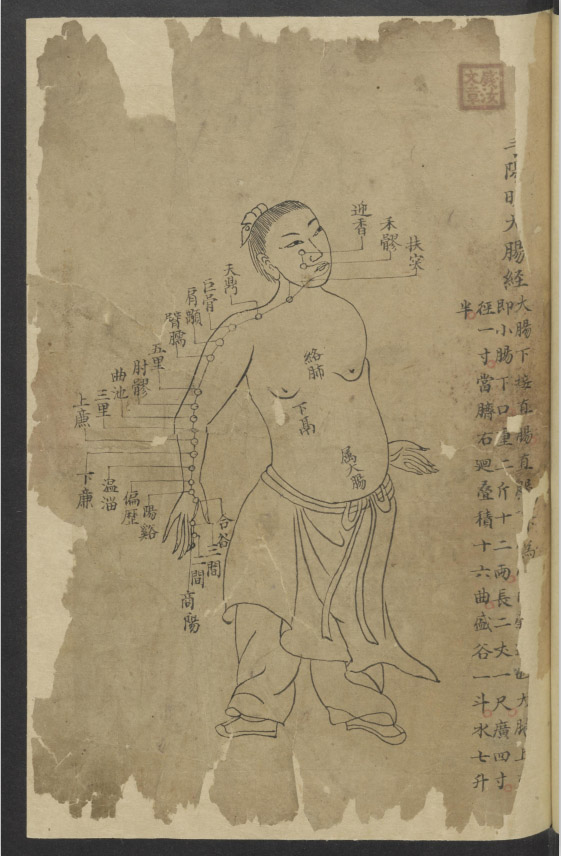 陽明大腸經
大腸下接直腸直
大腸上
即小腸下口重二斤十二兩長二丈一尺廣四寸
径一寸當臍右廻疊積十六曲盛谷一斗水七升
半
扶突
禾髎
迎香
天鼎
巨骨
肩顒
臂臑
五里
肘髎
曲池
三里
上廉
絡肺
下鬲
属大腸
合谷
三間
二間
商陽
陽谿
偏歴
温溜
下廉